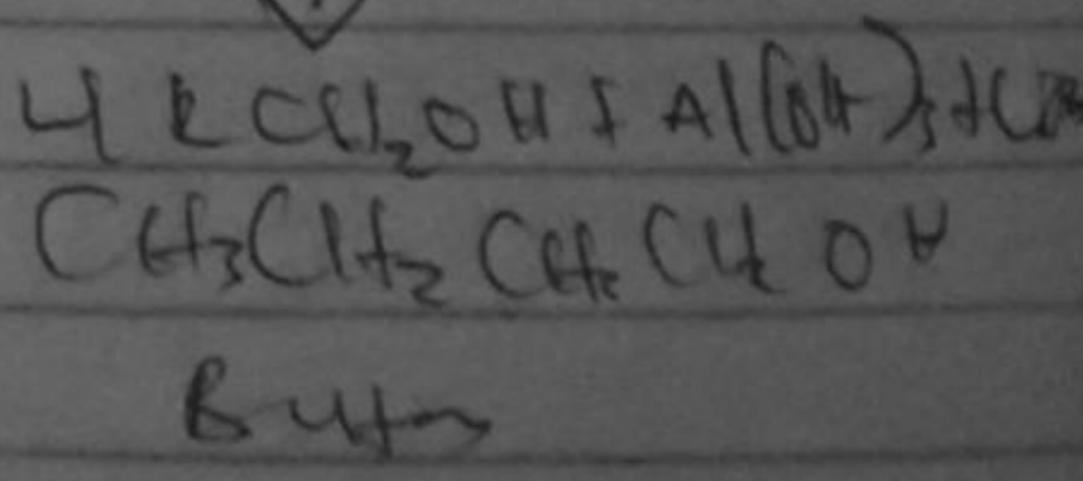 4 RCH₂OH + Al(OH)₃ +
CH₃CH₂CH₂CH₂OH